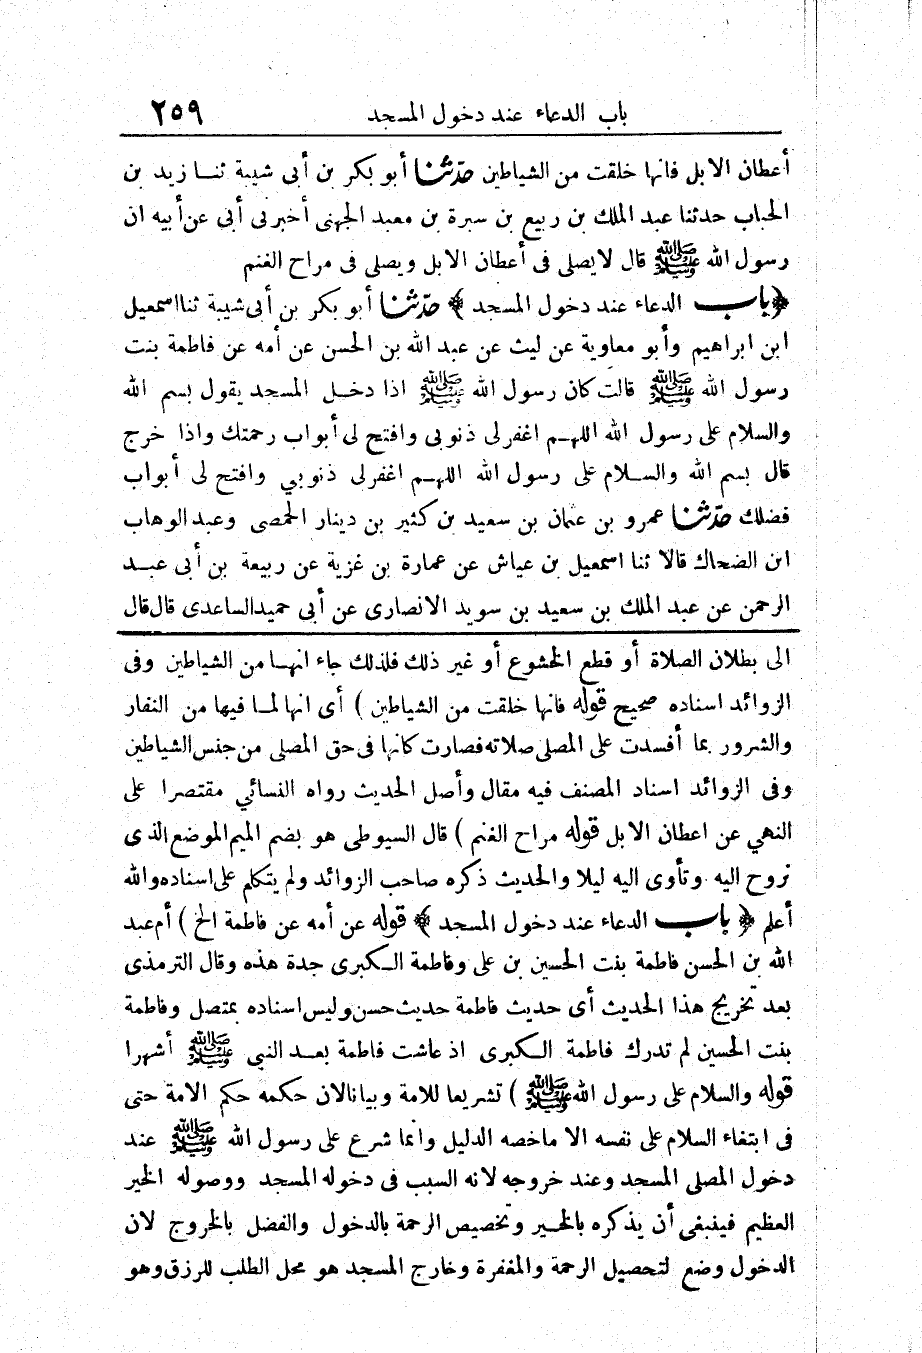 باب الدعاء عند دخول المسجد ٢٥٩
أعطان الابل فانها خلقت من الشياطين حدّثنا أبو بكر بن أبى شيبة ثنا زيد بن
الحباب حدثنا عبد الملك بن ربيع بن سبرة بن معبد الجهنى أخبرنى أبى عن أبيه ان
رسول الله ﷺ قال لايصلى فى أعطان الابل ويصلى فى مراح الغنم
﴿ باب الدعاء عند دخول المسجد ﴾ حدّثنا أبو بكر بن أبى شيبة ثنا اسمعيل
ابن ابراهيم وأبو معاوية عن ليث عن عبد الله بن الحسن عن أمه عن فاطمة بنت
رسول الله ﷺ قالت كان رسول الله ﷺ اذا دخل المسجد يقول بسم الله
والسلام على رسول الله اللهم اغفرلى ذنوبى وافتح لى أبواب رحمتك واذا خرج
قال بسم الله والسلام على رسول الله اللهم اغفرلى ذنوبي وافتح لى أبواب
فضلك حدّثنا عمرو بن عثمان بن سعيد بن كثير بن دينار الحمصى وعبد الوهاب
ابن الضحاك قالا ثنا اسمعيل بن عياش عن عمارة بن غزية عن ربيعة بن أبى عبد
الرحمن عن عبد الملك بن سعيد بن سويد الانصارى عن أبي حميد الساعدى قال قال
الى بطلان الصلاة أو قطع الخشوع أو غير ذلك فلذلك جاء انها من الشياطين وفى
الزوائد اسناده صحيح قوله فانها خلقت من الشياطين ) أى انها لما فيها من النفار
والشرور بما أفسدت على المصلى صلاته فصارت كانها فى حق المصلى من جنس الشياطين
وفى الزوائد اسناد المصنف فيه مقال وأصل الحديث رواه النسائي مقتصرا على
النهي عن اعطان الابل قوله مراح الغنم ) قال السيوطى هو بضم الميم الموضع الذى
نروح اليه وتأوى اليه ليلا والحديث ذكره صاحب الزوائد ولم يتكلم على اسناده والله
أعلم ﴿ باب الدعاء عند دخول المسجد ﴾ قوله عن أمه عن فاطمة الخ ) أم عبد
الله بن الحسن فاطمة بنت الحسين بن على وفاطمة الكبرى جدة هذه وقال الترمذى
بعد تخريج هذا الحديث أى حديث فاطمة حديث حسن وليس اسناده بمتصل وفاطمة
بنت الحسين لم تدرك فاطمة الكبرى اذ عاشت فاطمة بعد النبي ﷺ أشهرا
قوله والسلام على رسول الله ﷺ ) تشريعا للامة وبيانا لان حكمه حكم الامة حتى
فى ابتغاء السلام على نفسه الا ماخصه الدليل وانما شرع على رسول الله ﷺ عند
دخول المصلى المسجد وعند خروجه لانه السبب فى دخوله المسجد ووصوله الخير
العظيم فينبغى أن يذكره بالخير وتخصيص الرحمة بالدخول والفضل بالخروج لان
الدخول وضع لتحصيل الرحمة والمغفرة وخارج المسجد هو محل الطلب للرزق وهو